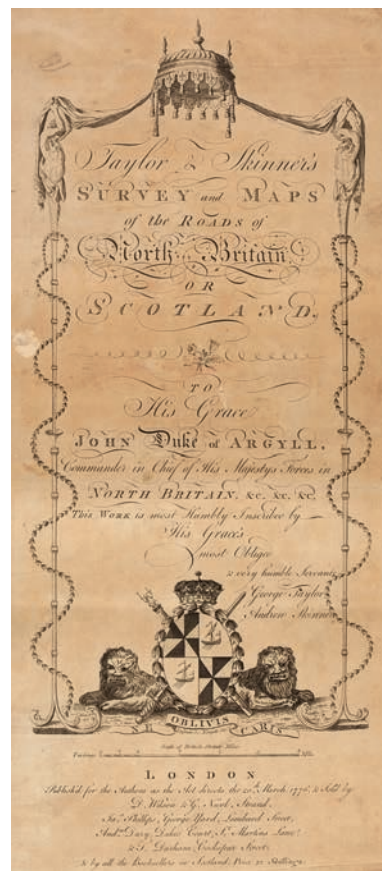 Taylor & Skinner's
SURVEY and MAPS
of the ROADS of
North Britain
OR
SCOTLAND,
TO
His Grace
JOHN Duke of ARGYLL,
Commander in Chief of His Majestys Forces in
NORTH BRITAIN, &c. &c. &c.
This WORK is most Humbly Inscribed by
His Grace's
most Oblig'd
& very humble Servants
George Taylor
Andrew Skinner
NE OBLIVISCARIS
Scale of British Statute Miles
Furlongs
LONDON
Publish'd for the Authors as the Act directs the 20th March, 1776, & Sold by
D. Wilson & G. Nicol, Strand,
Phillips, George Yard, Lombard Street,
Dury, Dukes Court, St. Martins Lane,
Durham, Cockspur Street,
& by all the Booksellers in Scotland, Price Shillings.